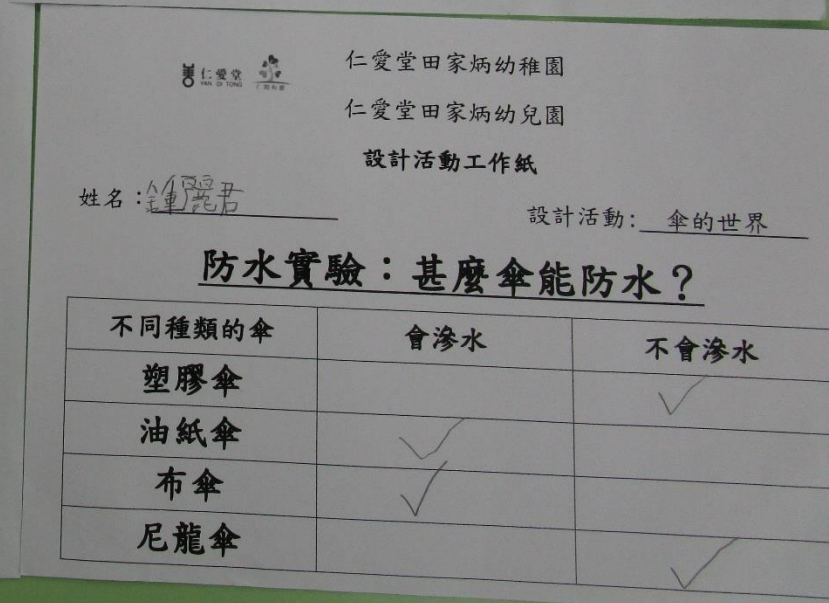 仁愛堂
YAN OI TONG
仁愛堂田家炳幼稚園
仁愛堂田家炳幼兒園
設計活動工作紙
姓名：鍾麗君
設計活動: 傘的世界
防水實驗：甚麼傘能防水？
不同種類的傘 會滲水 不會滲水
塑膠傘 ✓
油紙傘 ✓
布傘 ✓
尼龍傘 ✓